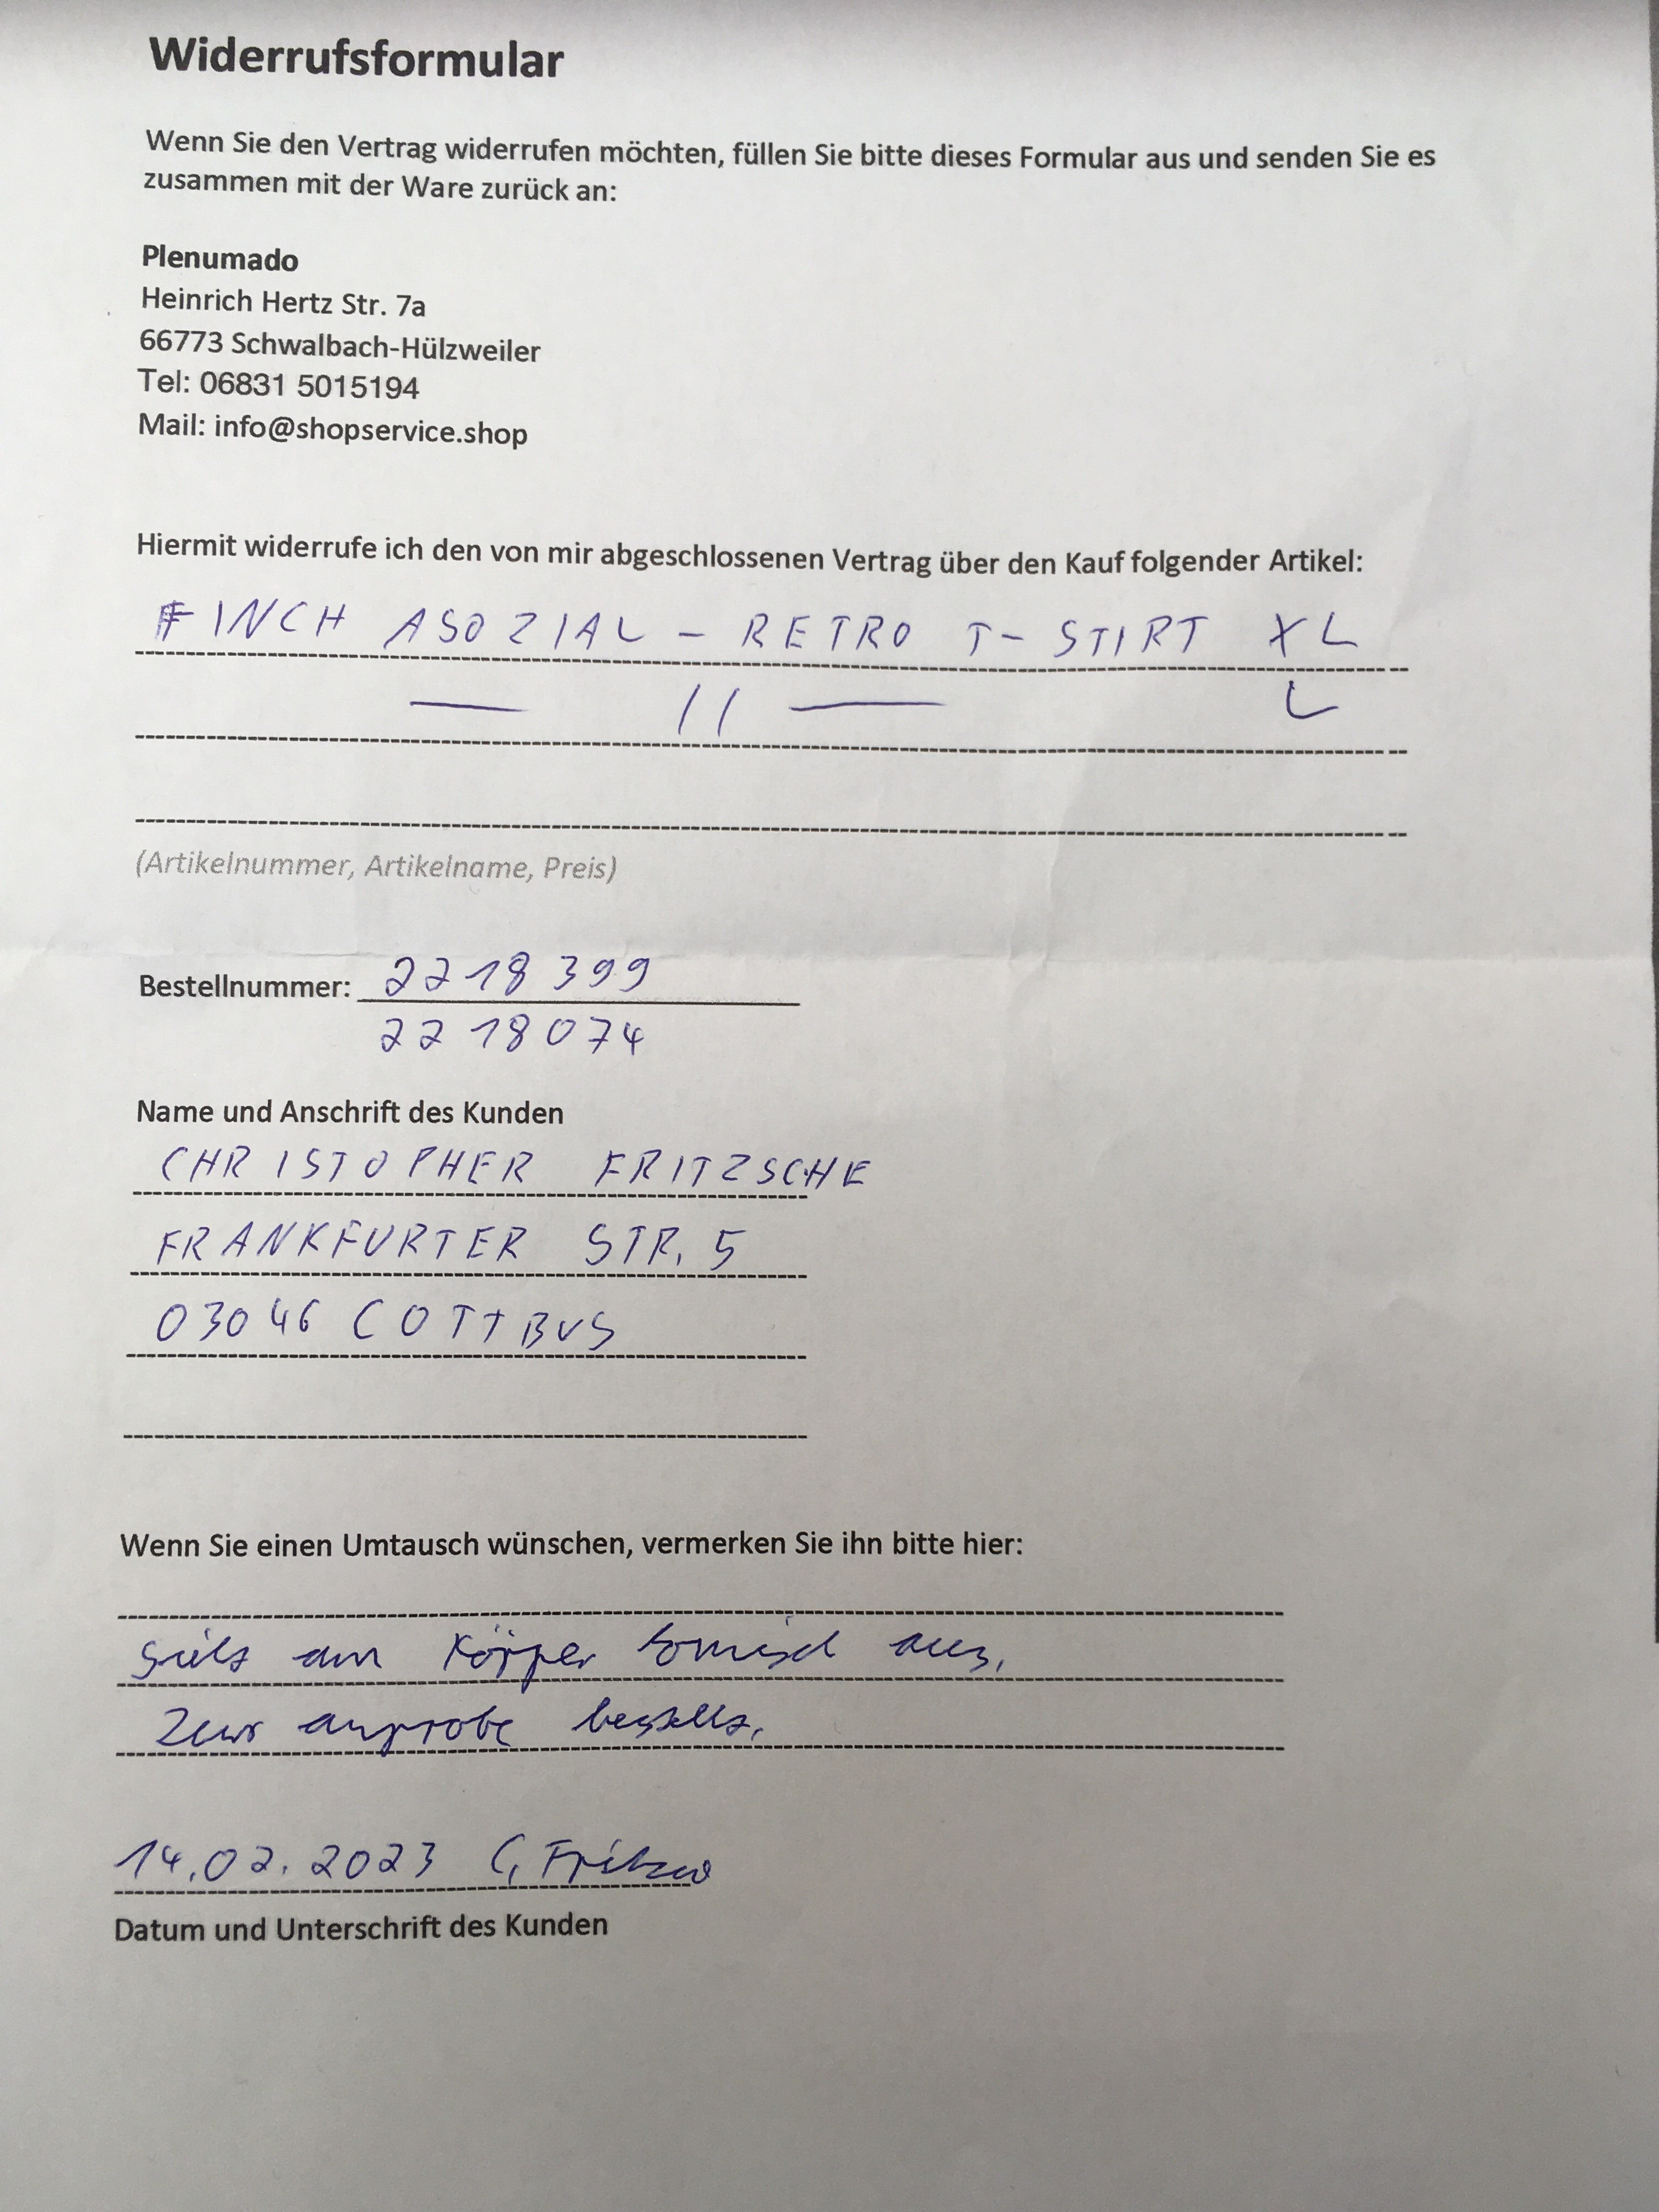 Widerrufsformular
Wenn Sie den Vertrag widerrufen möchten, füllen Sie bitte dieses Formular aus und senden Sie es
zusammen mit der Ware zurück an:
Plenumado
Heinrich Hertz Str. 7a
66773 Schwalbach-Hülzweiler
Tel: 06831 5015194
Mail: info@shopservice.shop
Hiermit widerrufe ich den von mir abgeschlossenen Vertrag über den Kauf folgender Artikel:
FINCH ASOZIAL - RETRO T-STIRT XL
— // — L
(Artikelnummer, Artikelname, Preis)
Bestellnummer: 2218399
2218074
Name und Anschrift des Kunden
CHRISTOPHER FRITZSCHE
FRANKFURTER STR. 5
03046 COTTBUS
Wenn Sie einen Umtausch wünschen, vermerken Sie ihn bitte hier:
sieht am Körper komisch aus,
Zur anprobe bestellt.
14.02.2023 C. Fritzsche
Datum und Unterschrift des Kunden